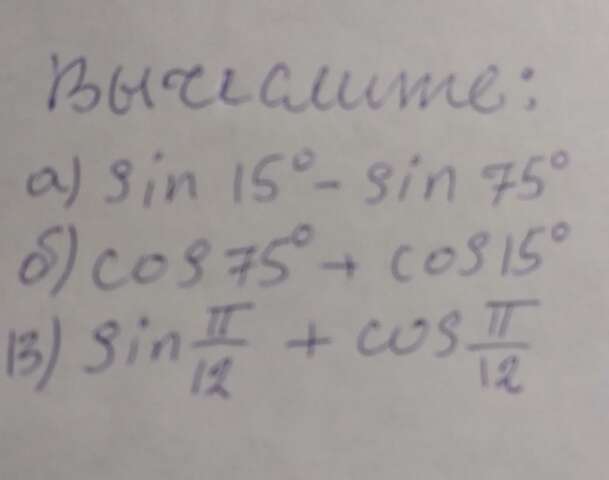 Вычислите:
а) sin 15° - sin 75°
б) cos 75° + cos 15°
в) sin π/12 + cos π/12